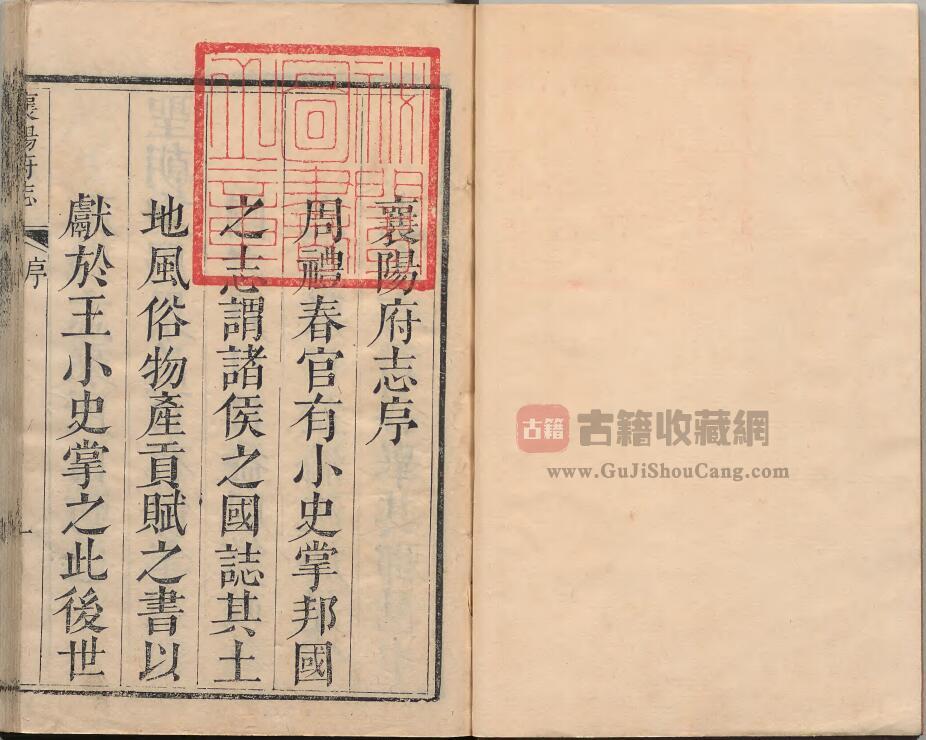 襄陽府志序
周禮春官有小史掌邦國
之志謂諸侯之國誌其土
地風俗物產貢賦之書以
獻於王小史掌之此後世
襄陽府志
序
一
古籍
古籍收藏網
www.GuJiShouCang.com